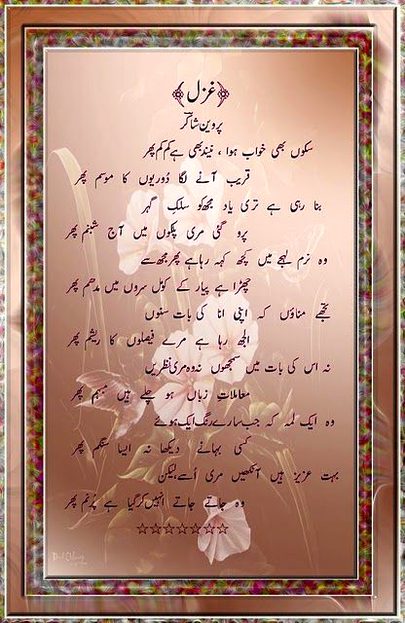 ﴿غزل﴾
پروین شاکر
سکوں بھی خواب ہوا ، نیند بھی ہے کم کم پھر
قریب آنے لگا دُوریوں کا موسم پھر
بنا رہی ہے تری یاد مجھ کو سلکِ گہر
پرو گئی مری پلکوں میں آج شبنم پھر
وہ نرم لہجے میں کچھ کہہ رہا ہے پھر مجھ سے
چھڑا ہے پیار کے کومل سروں میں مدھم پھر
تجھے مناؤں کہ اپنی انا کی بات سنوں
الجھ رہا ہے مرے فیصلوں کا ریشم پھر
نہ اس کی بات میں سمجھوں نہ وہ مری نظریں
معاملاتِ زباں ہو چلے ہیں مبہم پھر
وہ ایک لمحہ کہ جب سارے رنگ ایک ہوئے
کسی بہانے دیکھا نہ ایسا سنگم پھر
بہت عزیز ہیں آنکھیں مری اُسے لیکن
وہ جاتے جاتے انہیں کر گیا ہے پُرنم پھر
☆☆☆☆☆☆☆